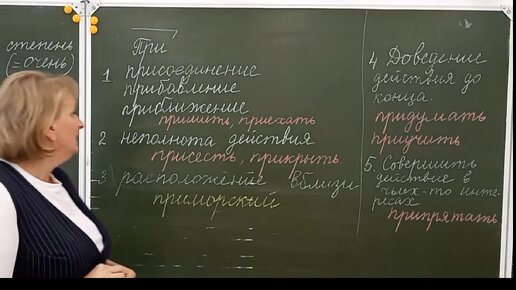 степень
(=очень)
При
1. присоединение
прибавление
приближение
пришить, приехать
2 неполнота действия
присесть, прикрыть
3 расположение вблизи
приморский
4 Доведение
действия до
конца.
придумать
приучить
5. Совершить
действие в
чьих-то инте-
ресах
припрятать